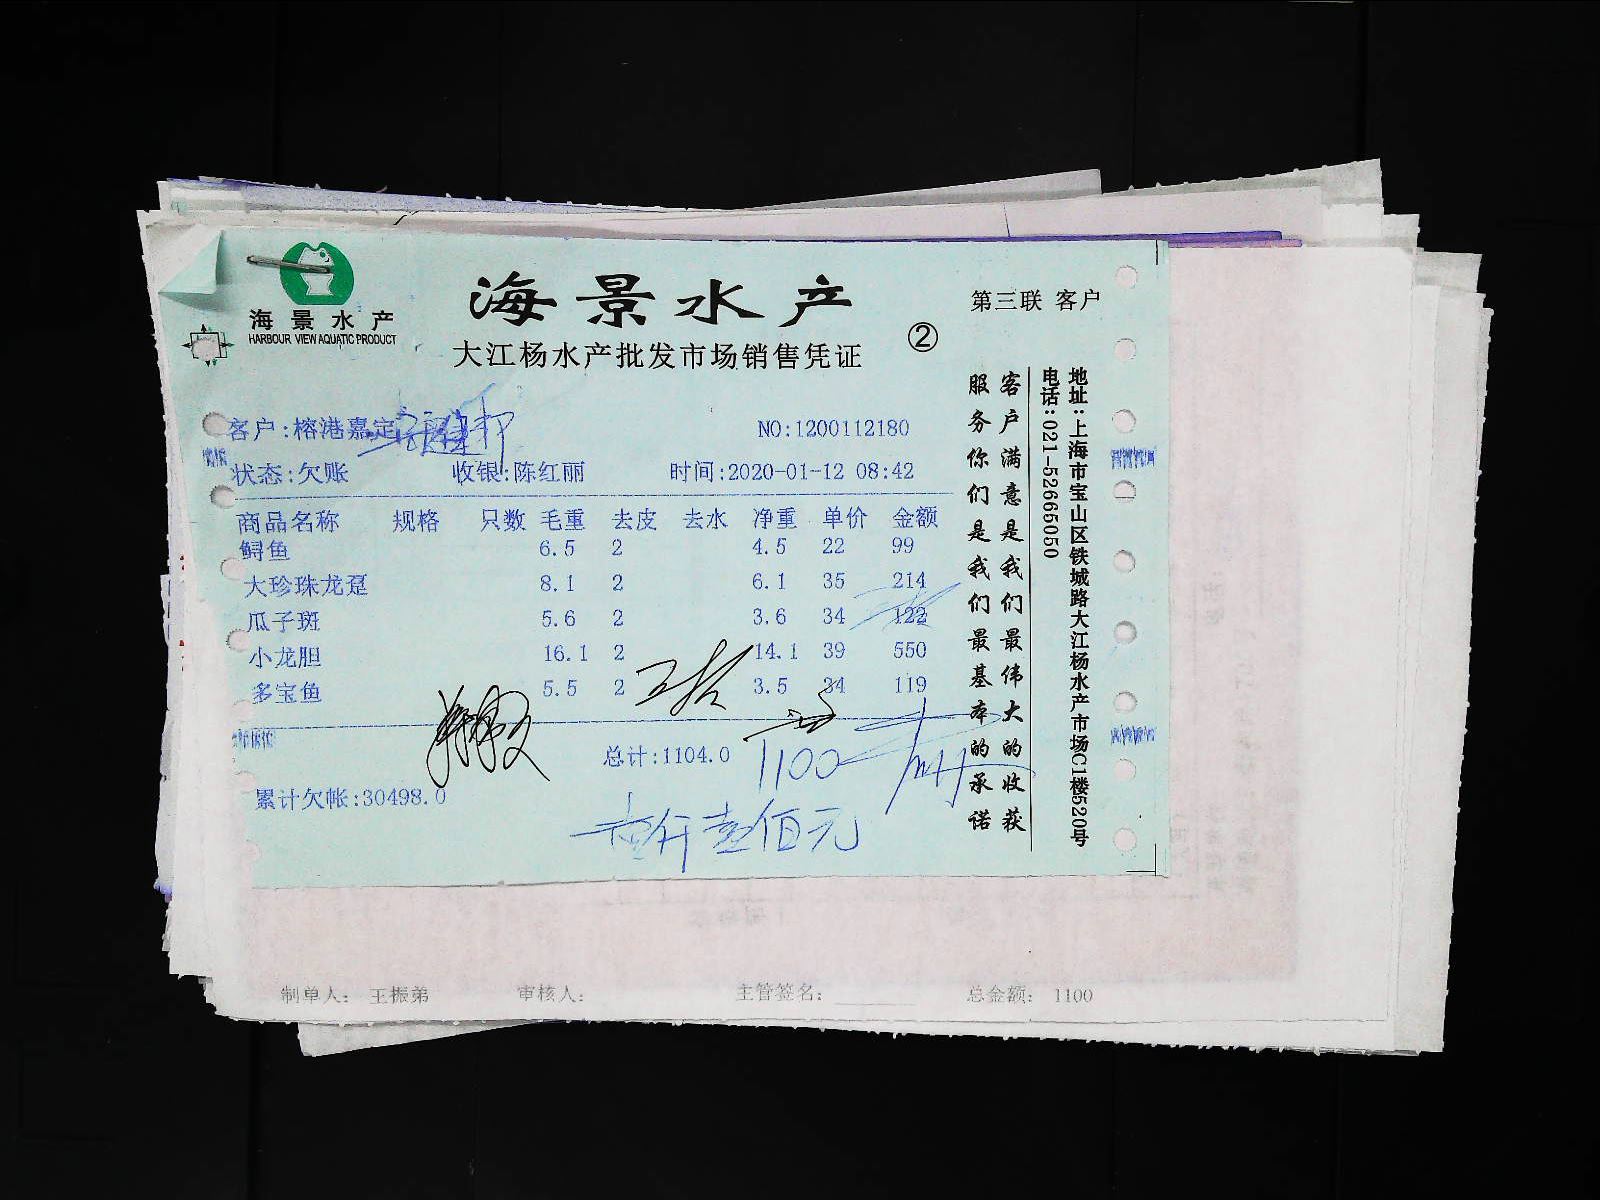 海景水产
HARBOUR VIEW AQUATIC PRODUCT
海景水产
大江杨水产批发市场销售凭证
②
第三联 客户
客户:榕港嘉定
NO:1200112180
状态:欠账 收银:陈红丽 时间:2020-01-12 08:42
商品名称 规格 只数 毛重 去皮 去水 净重 单价 金额
鲟鱼 6.5 2 4.5 22 99
大珍珠龙趸 8.1 2 6.1 35 214
瓜子斑 5.6 2 3.6 34 122
小龙胆 16.1 2 14.1 39 550
多宝鱼 5.5 2 3.5 34 119
总计:1104.0 1100
累计欠帐:30498.0
壹仟壹佰元
客户满意是我们最伟大的收获
服务你们是我们最基本的承诺
地址:上海市宝山区铁城路大江杨水产市场C1楼520号
电话:021-52665050
制单人: 王振弟 审核人: 主管签名: 总金额: 1100